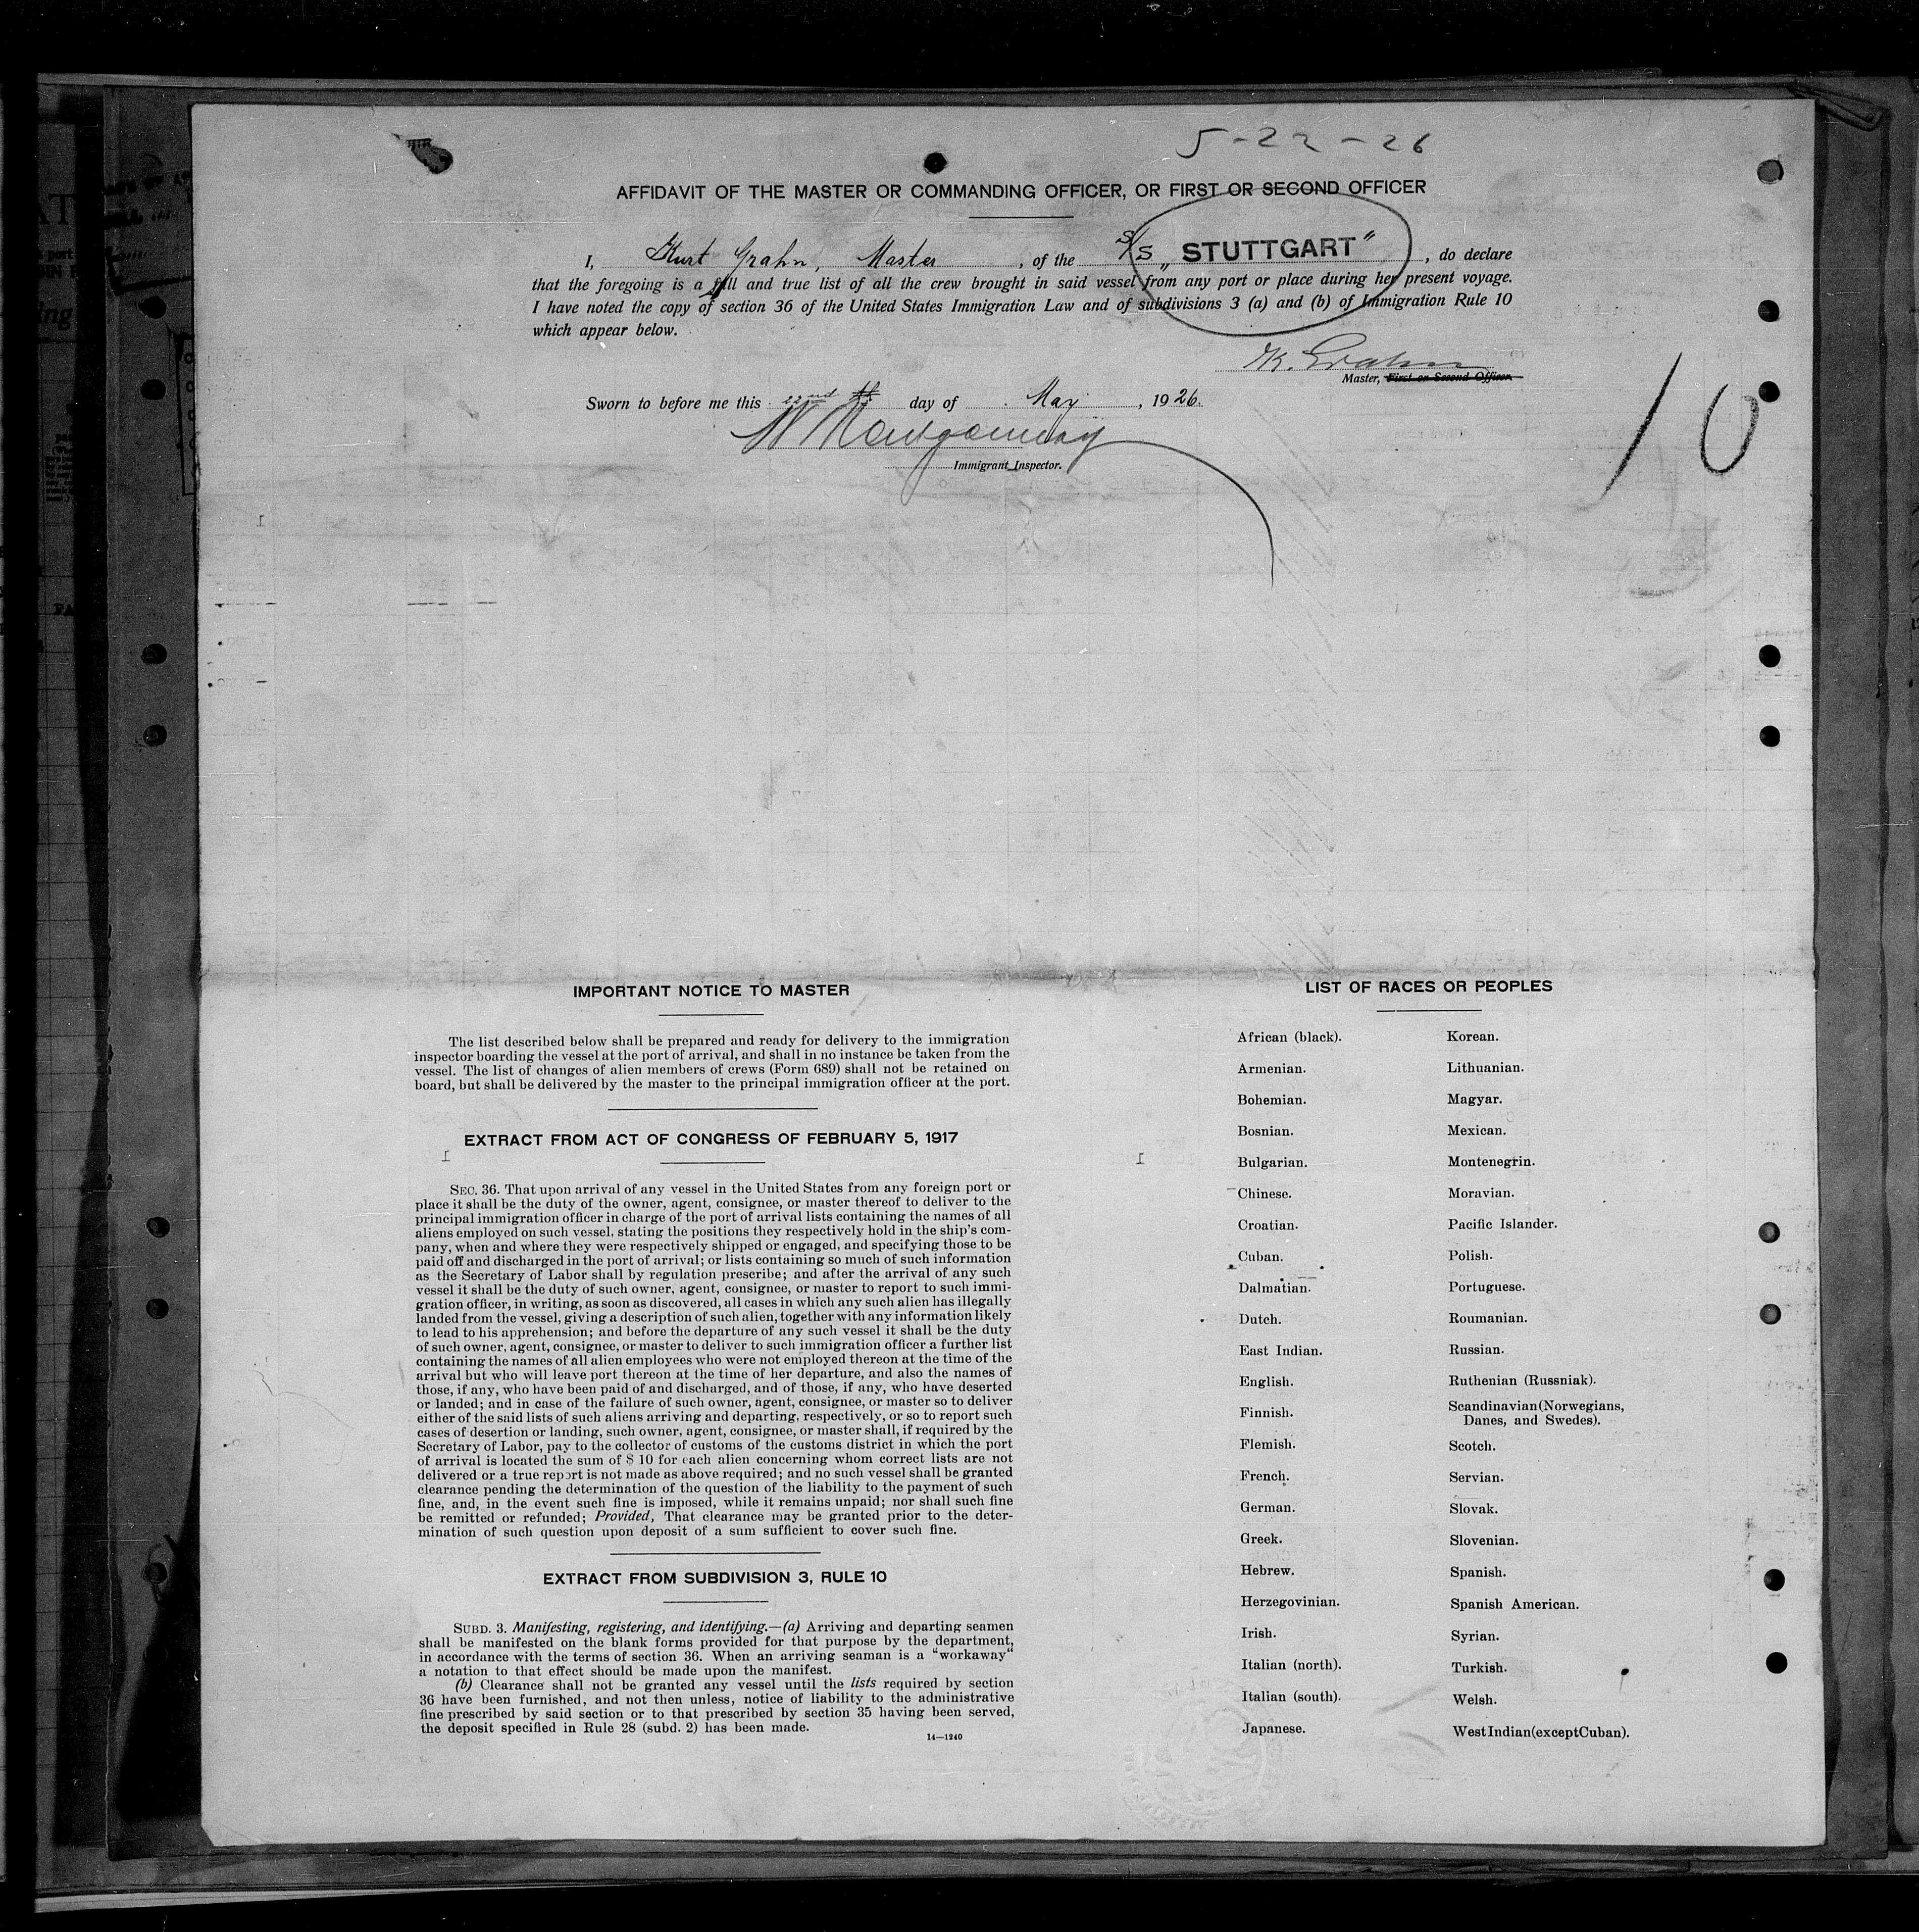 5-22-26
AFFIDAVIT OF THE MASTER OR COMMANDING OFFICER, OR FIRST OR SECOND OFFICER
I, Kurt Grahn, Master, of the S/S „STUTTGART", do declare
that the foregoing is a full and true list of all the crew brought in said vessel from any port or place during her present voyage.
I have noted the copy of section 36 of the United States Immigration Law and of subdivisions 3 (a) and (b) of Immigration Rule 10
which appear below.
K. Grahn
Master, First or Second Officer.
10
Sworn to before me this day of May, 1926.
Montgomery
Immigrant Inspector.
IMPORTANT NOTICE TO MASTER
The list described below shall be prepared and ready for delivery to the immigration
inspector boarding the vessel at the port of arrival, and shall in no instance be taken from the
vessel. The list of changes of alien members of crews (Form 689) shall not be retained on
board, but shall be delivered by the master to the principal immigration officer at the port.
EXTRACT FROM ACT OF CONGRESS OF FEBRUARY 5, 1917
SEC. 36. That upon arrival of any vessel in the United States from any foreign port or
place it shall be the duty of the owner, agent, consignee, or master thereof to deliver to the
principal immigration officer in charge of the port of arrival lists containing the names of all
aliens employed on such vessel, stating the positions they respectively hold in the ship's com-
pany, when and where they were respectively shipped or engaged, and specifying those to be
paid off and discharged in the port of arrival; or lists containing so much of such information
as the Secretary of Labor shall by regulation prescribe; and after the arrival of any such
vessel it shall be the duty of such owner, agent, consignee, or master to report to such immi-
gration officer, in writing, as soon as discovered, all cases in which any such alien has illegally
landed from the vessel, giving a description of such alien, together with any information likely
to lead to his apprehension; and before the departure of any such vessel it shall be the duty
of such owner, agent, consignee, or master to deliver to such immigration officer a further list
containing the names of all alien employees who were not employed thereon at the time of the
arrival but who will leave port thereon at the time of her departure, and also the names of
those, if any, who have been paid of and discharged, and of those, if any, who have deserted
or landed; and in case of the failure of such owner, agent, consignee, or master so to deliver
either of the said lists of such aliens arriving and departing, respectively, or so to report such
cases of desertion or landing, such owner, agent, consignee, or master shall, if required by the
Secretary of Labor, pay to the collector of customs of the customs district in which the port
of arrival is located the sum of $ 10 for each alien concerning whom correct lists are not
delivered or a true report is not made as above required; and no such vessel shall be granted
clearance pending the determination of the question of the liability to the payment of such
fine, and, in the event such fine is imposed, while it remains unpaid; nor shall such fine
be remitted or refunded; Provided, That clearance may be granted prior to the deter-
mination of such question upon deposit of a sum sufficient to cover such fine.
EXTRACT FROM SUBDIVISION 3, RULE 10
SUBD. 3. Manifesting, registering, and identifying.—(a) Arriving and departing seamen
shall be manifested on the blank forms provided for that purpose by the department,
in accordance with the terms of section 36. When an arriving seaman is a "workaway"
a notation to that effect should be made upon the manifest.
(b) Clearance shall not be granted any vessel until the lists required by section
36 have been furnished, and not then unless, notice of liability to the administrative
fine prescribed by said section or to that prescribed by section 35 having been served,
the deposit specified in Rule 28 (subd. 2) has been made.
14—1240
LIST OF RACES OR PEOPLES
African (black).
Armenian.
Bohemian.
Bosnian.
Bulgarian.
Chinese.
Croatian.
Cuban.
Dalmatian.
Dutch.
East Indian.
English.
Finnish.
Flemish.
French.
German.
Greek.
Hebrew.
Herzegovinian.
Irish.
Italian (north).
Italian (south).
Japanese.
Korean.
Lithuanian.
Magyar.
Mexican.
Montenegrin.
Moravian.
Pacific Islander.
Polish.
Portuguese.
Roumanian.
Russian.
Ruthenian (Russniak).
Scandinavian(Norwegians,
Danes, and Swedes).
Scotch.
Servian.
Slovak.
Slovenian.
Spanish.
Spanish American.
Syrian.
Turkish.
Welsh.
West Indian(except Cuban).